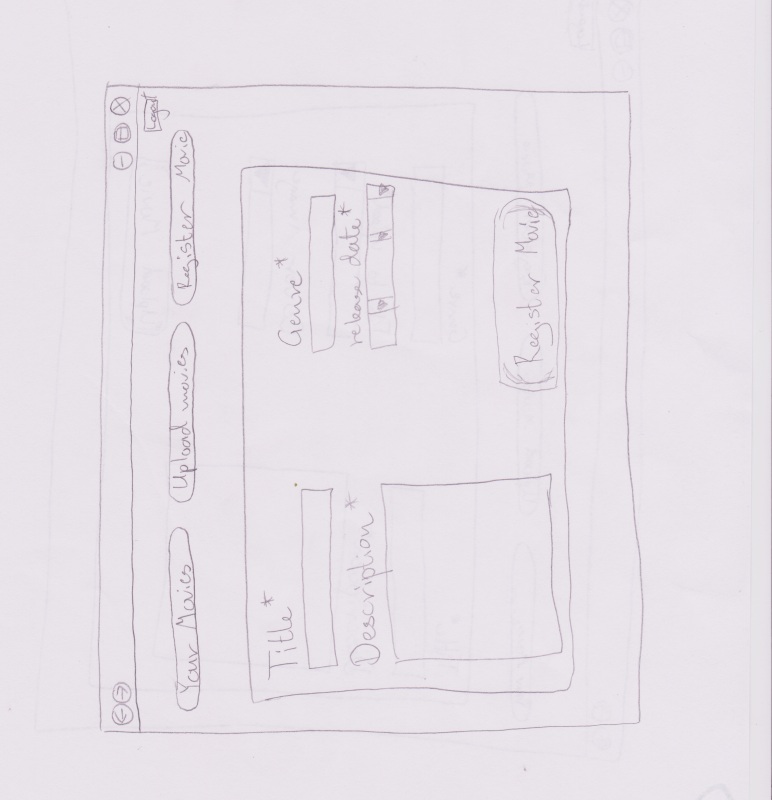 Logout
Your Movies
Upload movies
Register Movie
Title*
Genre*
Description*
release date*
Register Movie